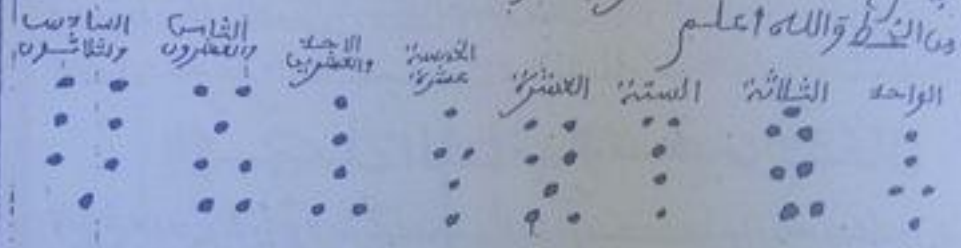 من الخط والله اعلم
الواحد الثلاثة الستة العشرة الخمسة عشرة الاحد والعشرين الثامن والعشرون السادس وثلاثون